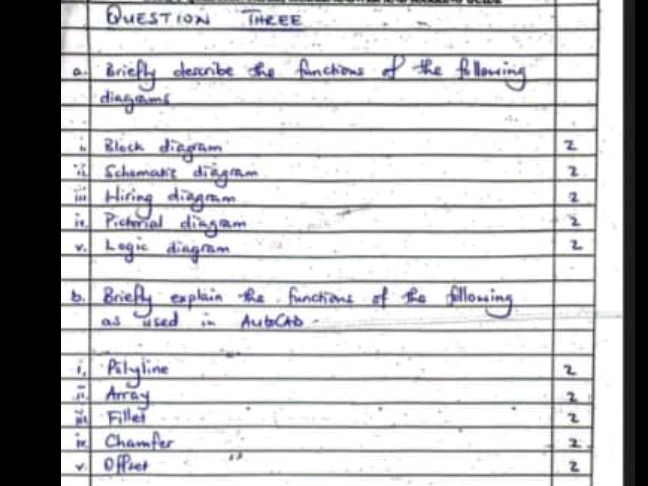 QUESTION THREE
a. Briefly describe the functions of the following
diagrams
i. Block diagram 2
ii Schematic diagram 2
iii Wiring diagram 2
iv. Pictorial diagram 2
v. Logic diagram 2
b. Briefly explain the functions of the following
as used in AutoCAD.
i. Polyline 2
ii. Array 2
iii. Fillet 2
iv. Chamfer 2
v. Offset 2